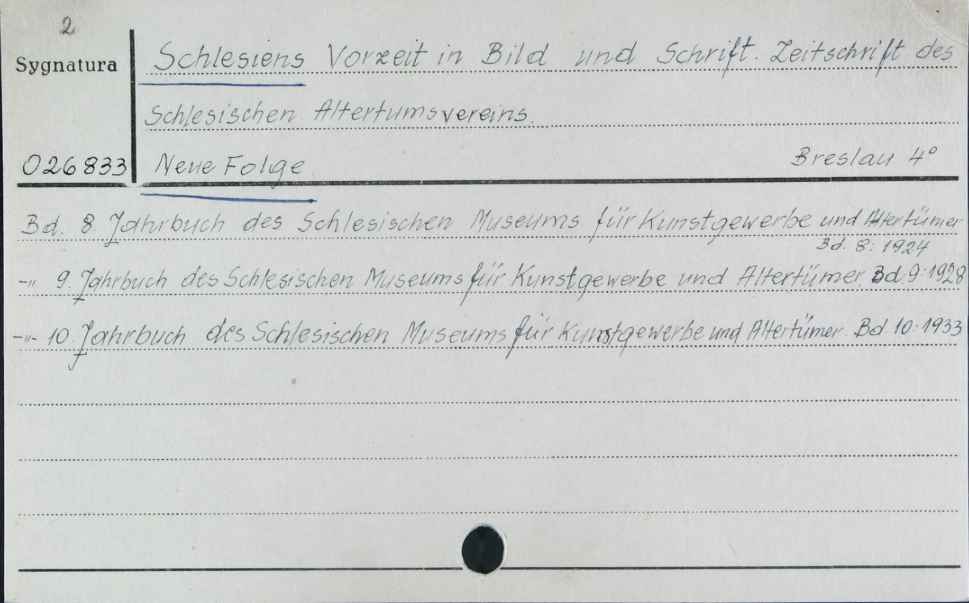 2
Sygnatura
Schlesiens Vorzeit in Bild und Schrift. Zeitschrift des
Schlesischen Altertumsvereins.
026833 Neue Folge Breslau 4°
Bd. 8. Jahrbuch des Schlesischen Museums für Kunstgewerbe und Altertümer
Bd. 8: 1924
-"- 9. Jahrbuch des Schlesischen Museums für Kunstgewerbe und Altertümer. Bd. 9: 1928
-"- 10. Jahrbuch des Schlesischen Museums für Kunstgewerbe und Altertümer. Bd. 10: 1933